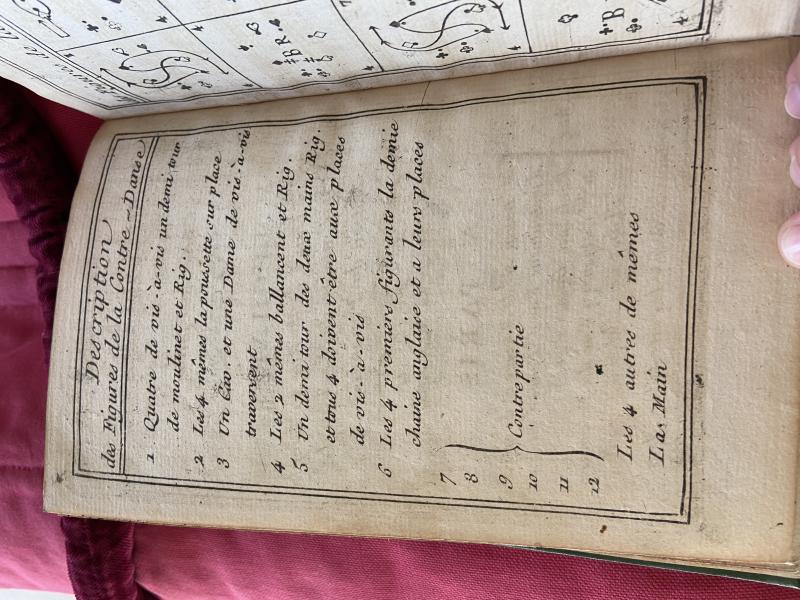 Description
des Figures de la Contre-Danse
1 Quatre de vis-à-vis un demi tour
de moulinet et Rig.
2 Les 4 mêmes la poussette sur place
3 Un Cav. et une Dame de vis-à-vis
traversent
4 Les 2 mêmes ballancent et Rig.
5 Un demi tour des deux mains Rig.
et tous 4 doivent être aux places
de vis-à-vis
6 Les 4 premiers figurants la demie
chaine anglaise et a leurs places
7
8
9 Contre partie
10
11
12
Les 4 autres de mêmes
La Main